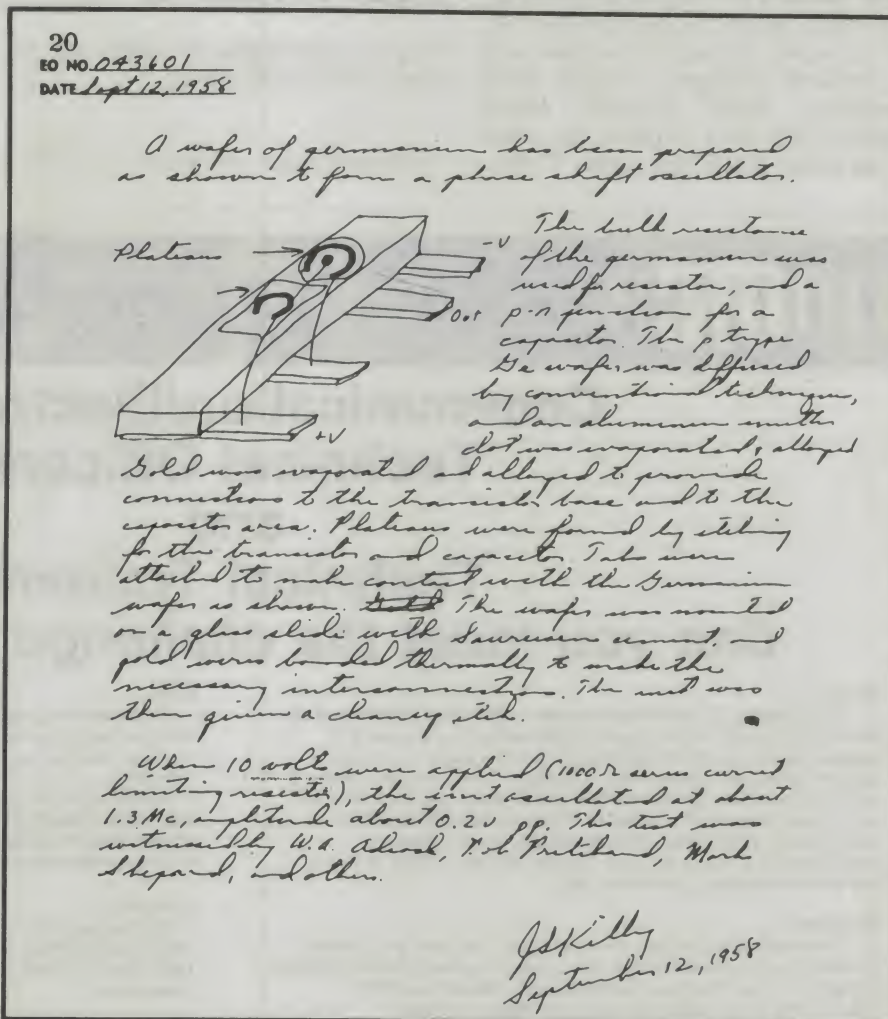 20
EO NO. 043601
DATE Sept 12, 1958
A wafer of germanium has been prepared
as shown to form a phase shift oscillator.
Plateaus
-V
Out
+V
The bulk resistance
of the germanium was
used for resistor, and a
p-n junction for a
capacitor. The p type
Ge wafer was diffused
by conventional techniques,
and an aluminum emitter
dot was evaporated, alloyed
Gold was evaporated and alloyed to provide
connections to the transistor base and to the
capacitor area. Plateaus were formed by etching
for the transistor and capacitor. Tabs were
attached to make contact with the Germanium
wafer as shown. Gold The wafer was mounted
on a glass slide with Sauereisen cement, and
gold wires bonded thermally to make the
necessary interconnections. The unit was
then given a cleanup etch.
When 10 volts were applied (1000 Ω series current
limiting resistor), the unit oscillated at about
1.3 Mc, amplitude about 0.2 v pp. This test was
witnessed by W.A. Adcock, Bob Pritchard, Mark
Shepard, and others.
JSKilby
September 12, 1958